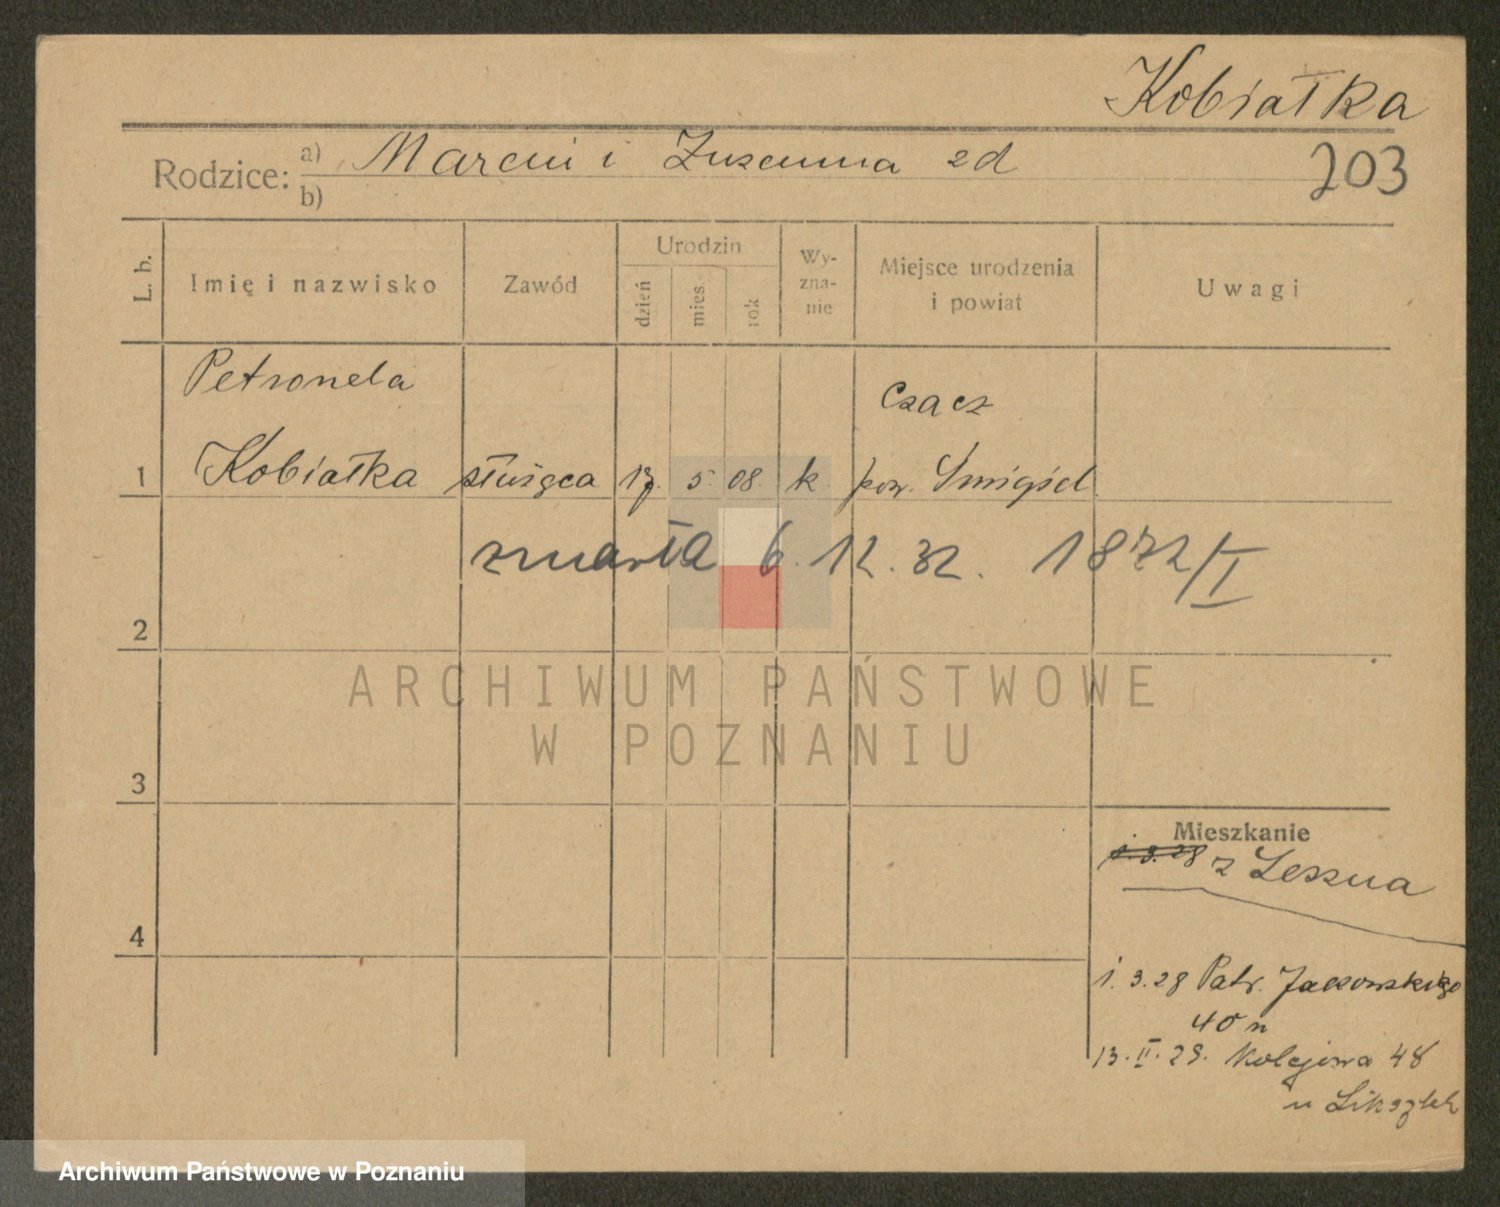 Kobiałka
Rodzice: a) Marcin i Zuzanna zd
b)
203
L. b. Imię i nazwisko Zawód Urodzin dzień mies. rok Wy-zna-nie Miejsce urodzenia i powiat Uwagi
Petronela Czacz
1 Kobiałka służąca 17. 5. 08. k. pow. Śmigiel
zmarła 6.12.32. 1872/I
2
ARCHIWUM PAŃSTWOWE
W POZNANIU
3
Mieszkanie
1.3.28 z Leszna
4
1.3.28 Patr. Jackowskiego
40 n
13.II.29. Kolejowa 48
u
Archiwum Państwowe w Poznaniu